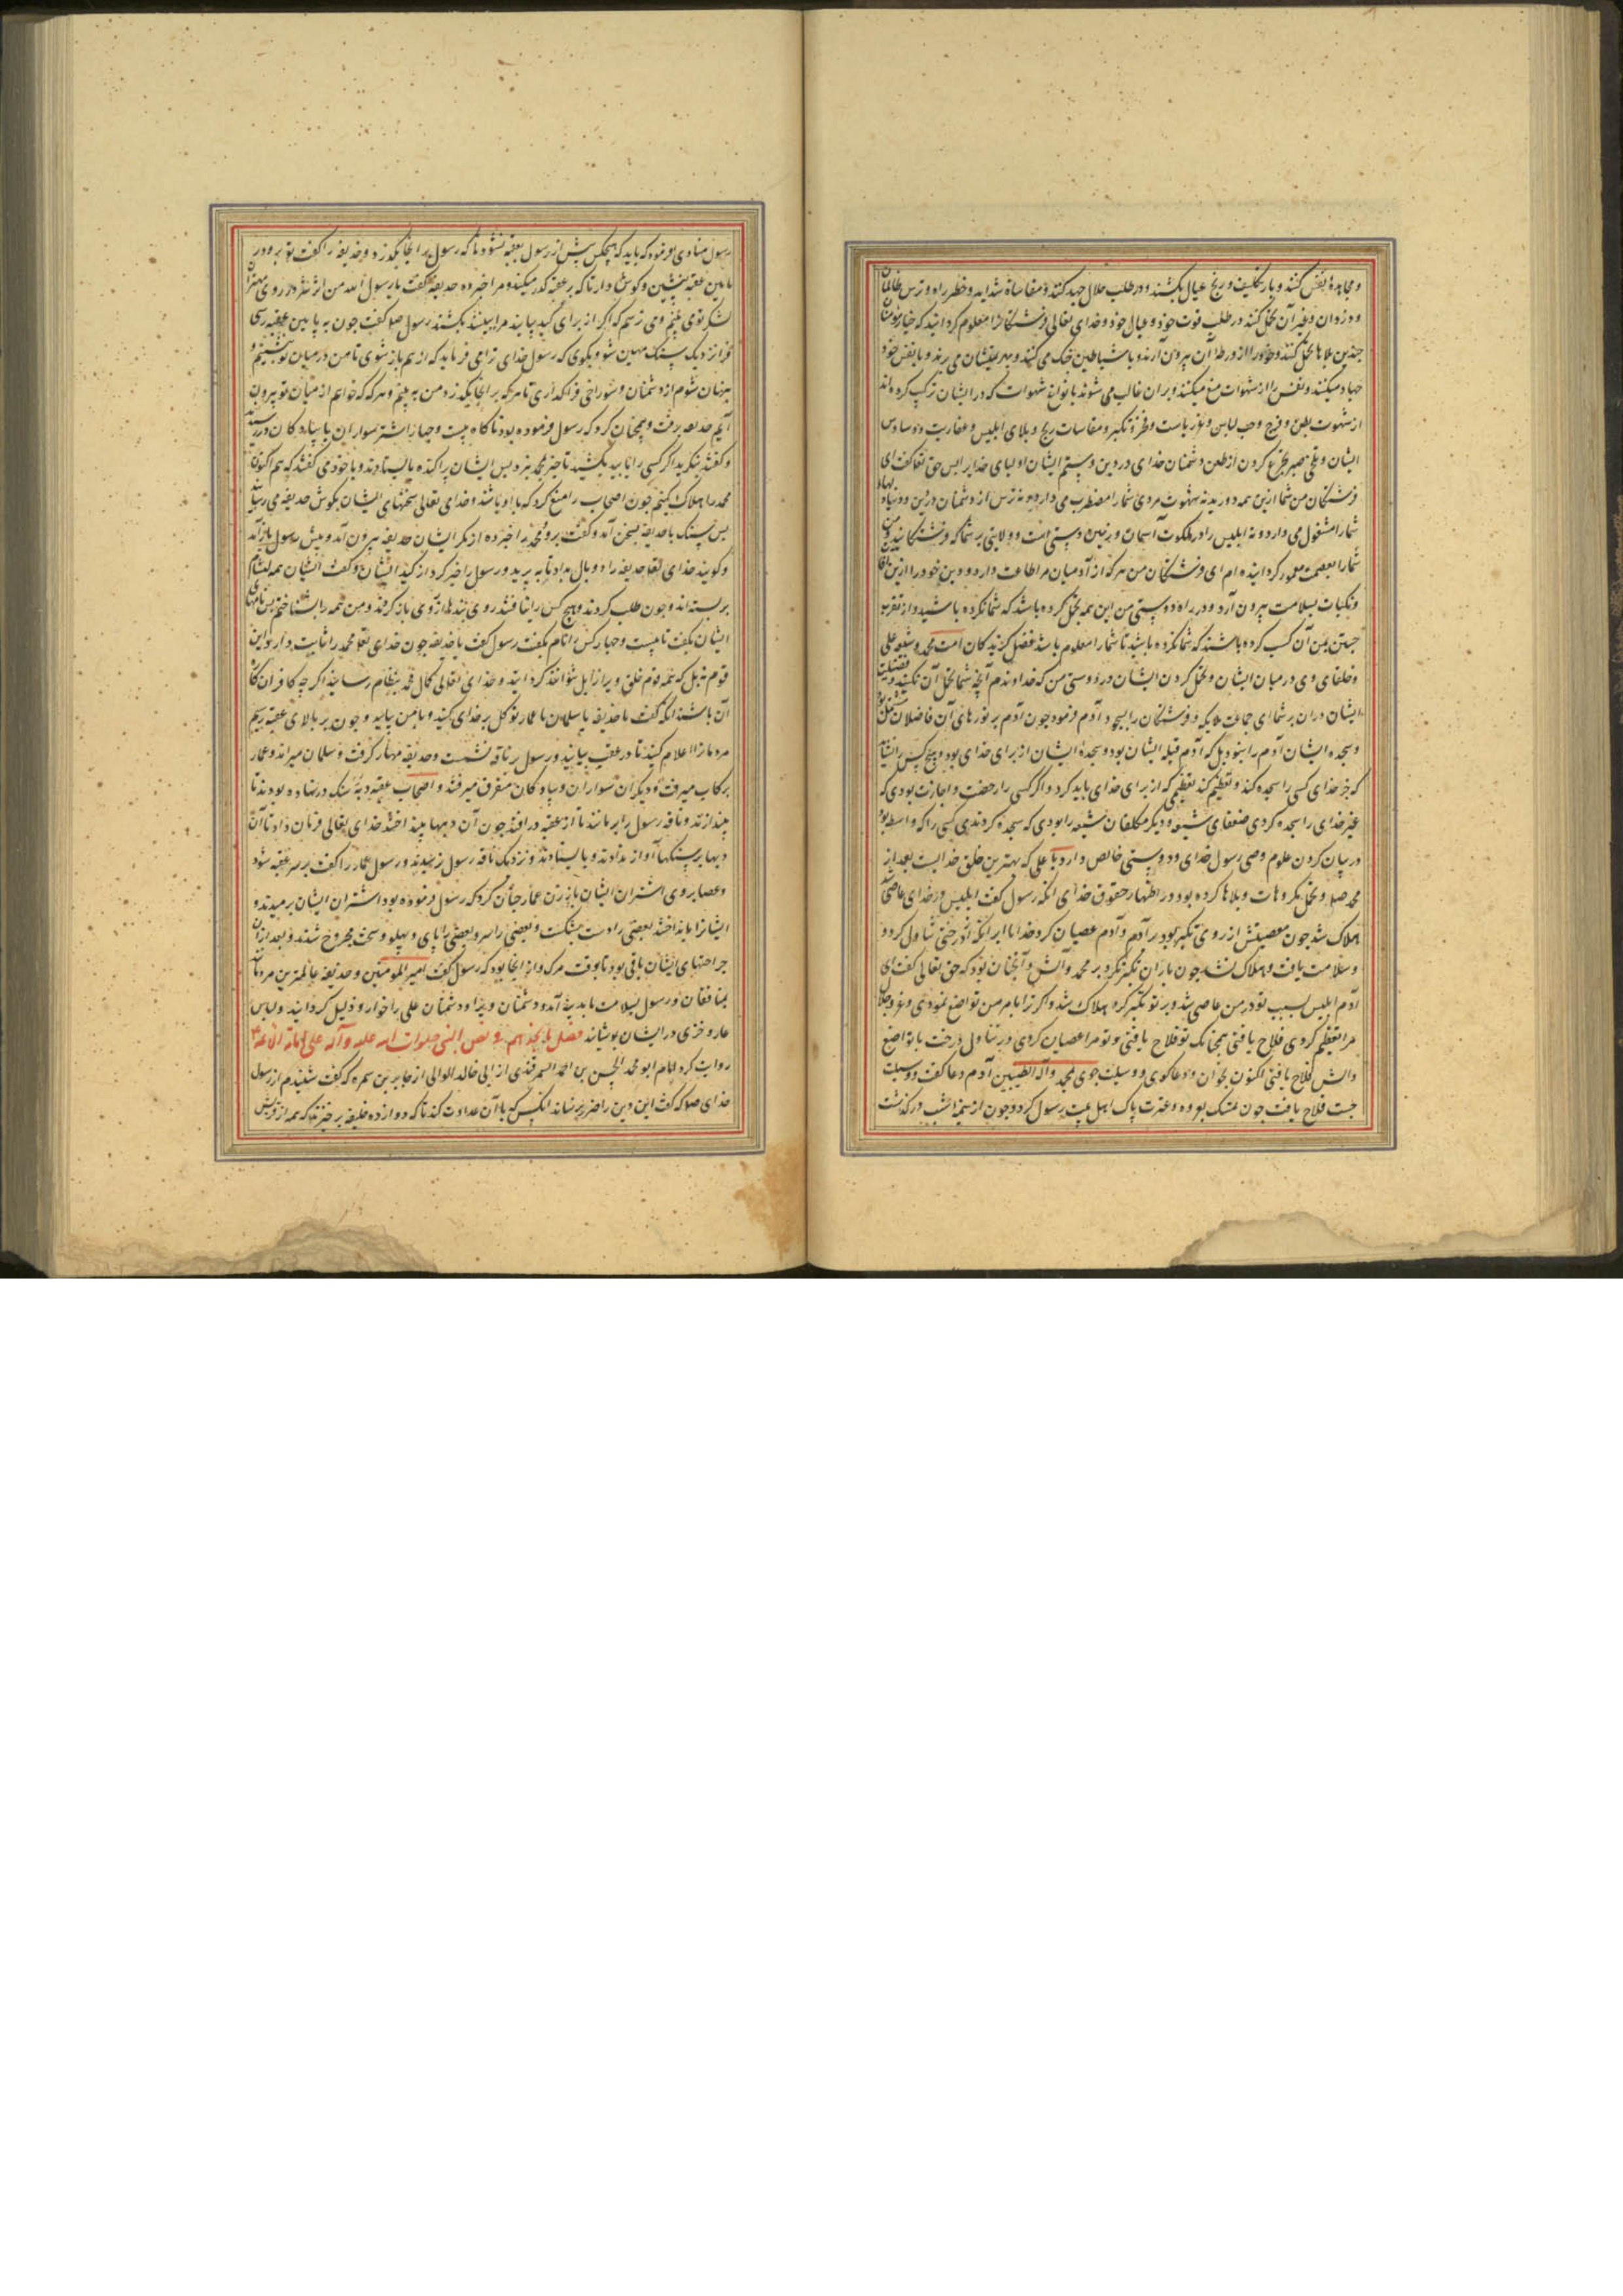 و مجاهدهٔ نفس کنند و بار تکلیف و رنج عیال بکشند و در طلب حلال جهد کنند و مقاساة شداید و خطر راه و ترس ظالمان
و دزدان و غیر آن تحمل کنند در طلب قوت خود و عیال خود و خدای تعالی فرشتکانرا معلوم کردانید که خیار مومنان
چندین بلاها تحمل کنند و خود را از ورطهٔ آن بیرون آرند و با شیاطین جنک می کنند و بهزیمتشان می برند و با نفس خود
جهاد میکنند و نفس را از شهوات منع میکنند و بر آن غالب می شوند با انواع شهوات که در ایشان ترکیب کرده اند
از شهوت بطن و فرج و حب لباس و عز ریاست و فخر و تکبر و مقاسات رنج و بلای ابلیس و عفاریت و وساوس
ایشان و تلخی صبر تجرع کردن از طعن دشمنان خدای در دین و ستم ایشان اولیای خدایرا پس حق تعالی گفت ای
فرشتکان من شما ازین همه دورید نه شهوت مردی شما را مضطرب می دارد و نه ترس از دشمنان دین و دنیا
شما را مشغول می دارد و نه ابلیس را در ملکوت آسمان و زمین دستی است و ولایتی بر شما که فرشتکانید من
شما را بعصمت معمور کردانیده ام ای فرشتکان من هر که از آدمیان مرا طاعت دارد و دین خود را ازین آفات
و نکبات بسلامت بیرون آرد و در راه دوستی من این همه تحمل کرده باشد که شما نکرده باشید و از تقرب
جستن بمن آن کسب کرده باشند که شما نکرده باشید تا شما را معلوم باشد فضل کزیدکان امت محمد و شیعه علی
و خلفای وی در میان ایشان و تحمل کردن ایشان در دوستی من که خداوندم آنچه شما تحمل آن نکنید و فضیلت
ایشان دران بر شما ای جماعت ملایکه و فرشتکان را بسجود آدم فرمود چون آدم بر نورهای آن فاضلان مشتمل بود
و سجده ایشان آدم را نبود بل که آدم قبلهٔ ایشان بود و سجدهٔ ایشان از برای خدای بود و هیچ کس را نشاید
که جز خدای کسی را سجده کند و تعظیم کند تعظیمی که از برای خدای باید کرد و اکر کسی را رخصت و اجازت بودی که
غیر خدای را سجده کردی ضعفای شیعه و دیکر مکلفان شیعه را بودی که سجده کردندی کسی را که واسطه بود
در بیان کردن علوم وصی رسول خدای و دوستی خالص دارد با علی که بهترین خلق خدایست بعد از
محمد صلع و تحمل مکروهات و بلاها کرده بود در اظهار حقوق خدای انکه رسول کفت ابلیس در خدای عاصی شد
هلاک شد چون معصیتش از روی تکبر بود بر آدم و آدم عصیان کرد خدایرا برآنکه از درختی تناول کرد و
و سلامت یافت و هلاک نشد چون با آن تکبر نکرد بر محمد و آلش و آنچنان بود که حق تعالی کفت ای
آدم ابلیس بسبب تو در من عاصی شد و بر تو تکبر کرد هلاک شد و اکر ترا بامر من تواضع نمودی و عز و جلال
مرا تعظیم کردی فلاح یافتی همچنانک تو فلاح یافتی و تو مرا عصیان کردی در تناول درخت با تواضع
و آلش فلاح یافتی اکنون بخوان و دعا کوی و وسیلت جوی بمحمد و آله الطیبین آدم دعا کفت و وسیلت
جست فلاح یافت چون تمسک بعروه و عترت پاک اهل بیت رسول کرد و چون از نیمه شب در کذشت
رسول منادی فرمود که باید که هیچکس پیش از رسول بعقبه نشود تا که رسول برانجا بکذرد و حذیفه را کفت تو برو در
پایین عقبه بنشین و کوش دار تا که بر عقبه کذر میکند و مرا خبر ده حذیفه کفت یا رسول الله من اثر شر در روی مهتران
لشکر توی بینم و می ترسم که اکر از برای کید بیایند مرا ببینند بکشند رسول صلع کفت چون به پایین عقبه رسی
فراز نزدیک سنک مهین شو و بکوی که رسول خدای ترا می فرماید که از هم باز شوی تا من در میان تو بنشینم و
پنهان شوم از دشمنان و سوراخی فراکذاری تا هر که بر انجا بکذرد من به بینم و هر که که خواهم از میان تو بیرون
آیم حذیفه برفت و همچنان کرد که رسول فرموده بود ناکاه بیست و چهار اشتر سواران با پیادکان در رسید
و کفتند بنکرید اکر کسی را بیابید بکشید تا خبر بمحمد نبرد پس ایشان پراکنده بایستادند و با خود می کفتند که هم اکنون
محمد را هلاک کنیم چون اصحاب را منع کرد که با او باشند و خدای تعالی سخنهای ایشان بکوش حذیفه می رسانید
پس سنک با حذیفه بسخن آمد و کفت برو محمد را خبر ده از مکر ایشان حذیفه بیرون آمد و پیش رسول باز آمد
و کویند خدای تعالی حذیفه را دو بال بداد تا به پرید و رسول را خبر کرد از کید ایشان و کفت ایشان همه لثام
بر بسته اند و چون طلب کردند و هیچ کس را نیافتند روی بندها از روی باز کرفتند و من همه را بشناختم پس نامهای
ایشان بکفت تا بیست و چهار کس را نام بکفت رسول کفت یا حذیفه چون خدای تعالی محمد را ثابت دارد این
قوم نه بل که همه قوم خلق ویرا زایل نتوانند کردانید و خدای تعالی کمال محمد بنظام رساند اکر چه کافران کاره
آن باشند انکه کفت یا حذیفه یا سلمان یا عمار توکل بر خدای کنید و با من بیایید و چون بر بالای عقبه رسیم
مردمانرا اعلام کنید تا در عقب بیایند و رسول بر ناقه نشست و حذیفه مهار کرفت و سلمان میراند و عمار
برکاب میرفت و دیکران سواران و پیادکان متفرق میرفتند و اصحاب عقبه دبهٔ سنک در نهاده بودند تا
بیندازند و ناقه رسول را برمانند تا از عقبه در افتد چون آن دبهها بینداختند خدای تعالی فرمان داد تا آن
دبها بر سنکها آواز بدادند و بایستادند و نزدیک ناقه رسول نرسیدند و رسول عمار را کفت بر سر عقبه شو
و عصا بر روی اشتران ایشان باز زن عمار چنان کرد که رسول فرموده بود اشتران ایشان برمیدند و
ایشانرا بینداختند بعضی را دست بشکست و بعضی را سر و بعضی را پای و پهلو و سخت مجروح شدند و بعد ازان
جراحتهای ایشان باقی بود تا بوقت مرک و از انجا بود که رسول کفت امیر المومنین و حذیفه عالمترین مردمانند
بمنافقان و رسول بسلامت بامدینه آمد و دشمنان ویرا و دشمنان علی را خوار و ذلیل کردانید و لباس
عار و خزی در ایشان پوشانید فصل پانجدهم در نص النبی صلوات الله علیه و آله علی امامة الائمة ع
روایت کرد امام ابو محمد الحسن بن احمد السمرقندی از ابی خالد الوالی از جابر بن سمره که کفت شنیدم از رسول
خدای صلع که کفت این دین را ضرر نرساند انکس که باآن عداوت کند تا که دوازده خلیفه برخیزند که همه از قریش